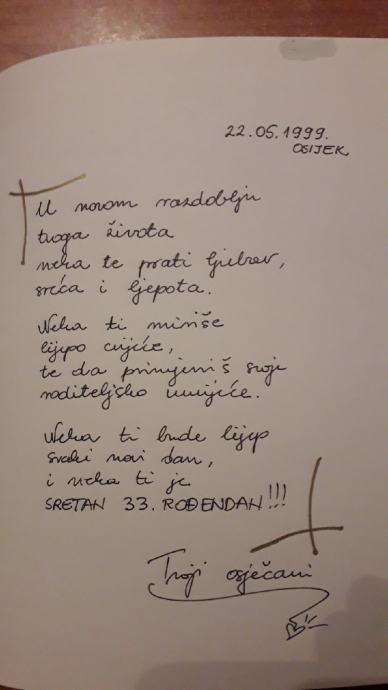 22.05.1999.
OSIJEK
U novom razdoblju
tvoga života
neka te prati ljubav,
sreća i ljepota.
Neka ti miriše
lijepo cvijeće,
te da primjeniš svoje
roditeljsko umijeće.
Neka ti bude lijep
svaki novi dan,
i neka ti je
SRETAN 33. ROĐENDAN!!!
Tvoji osječani